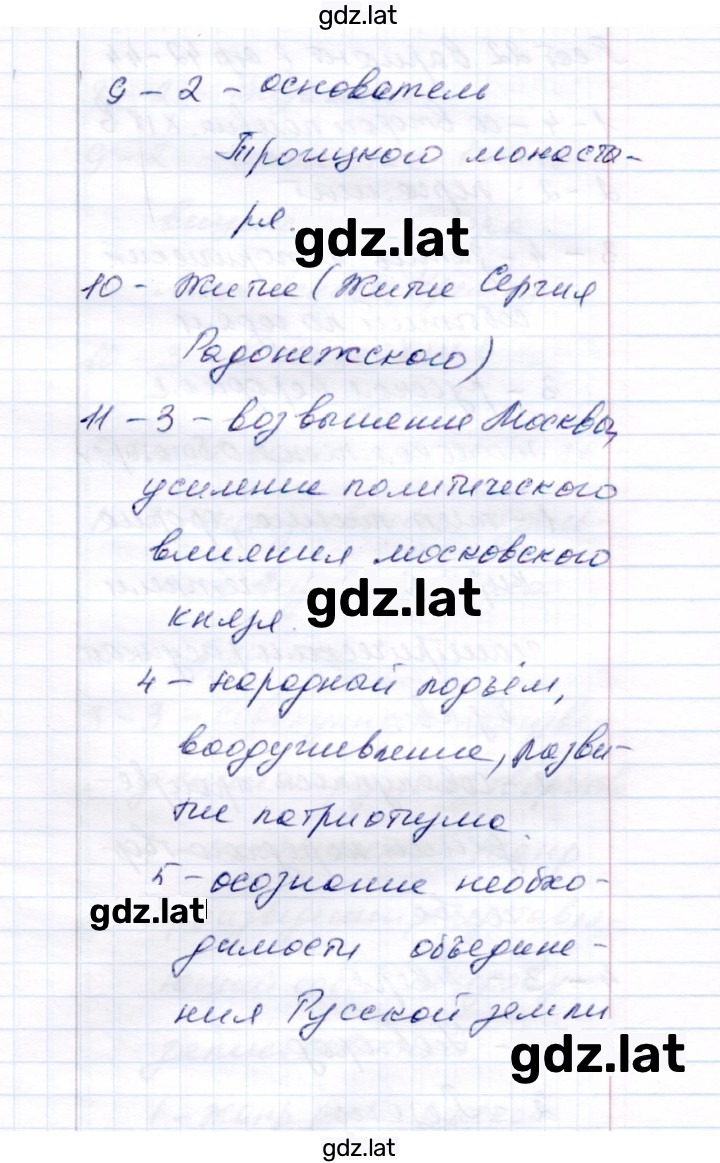 gdz.lat
9 – 2 – основатель
Троицкого монасты-
ря.
gdz.lat
10 - Житие (Житие Сергия
Радонежского)
11 – 3 – возвышение Москвы,
усиление политического
влияния московского
князя.
gdz.lat
4 – народный подъём,
воодушевление, разви-
тие патриотизма.
5 – осознание необхо-
gdz.lat
димости объедине-
ния Русской земли
gdz.lat
gdz.lat